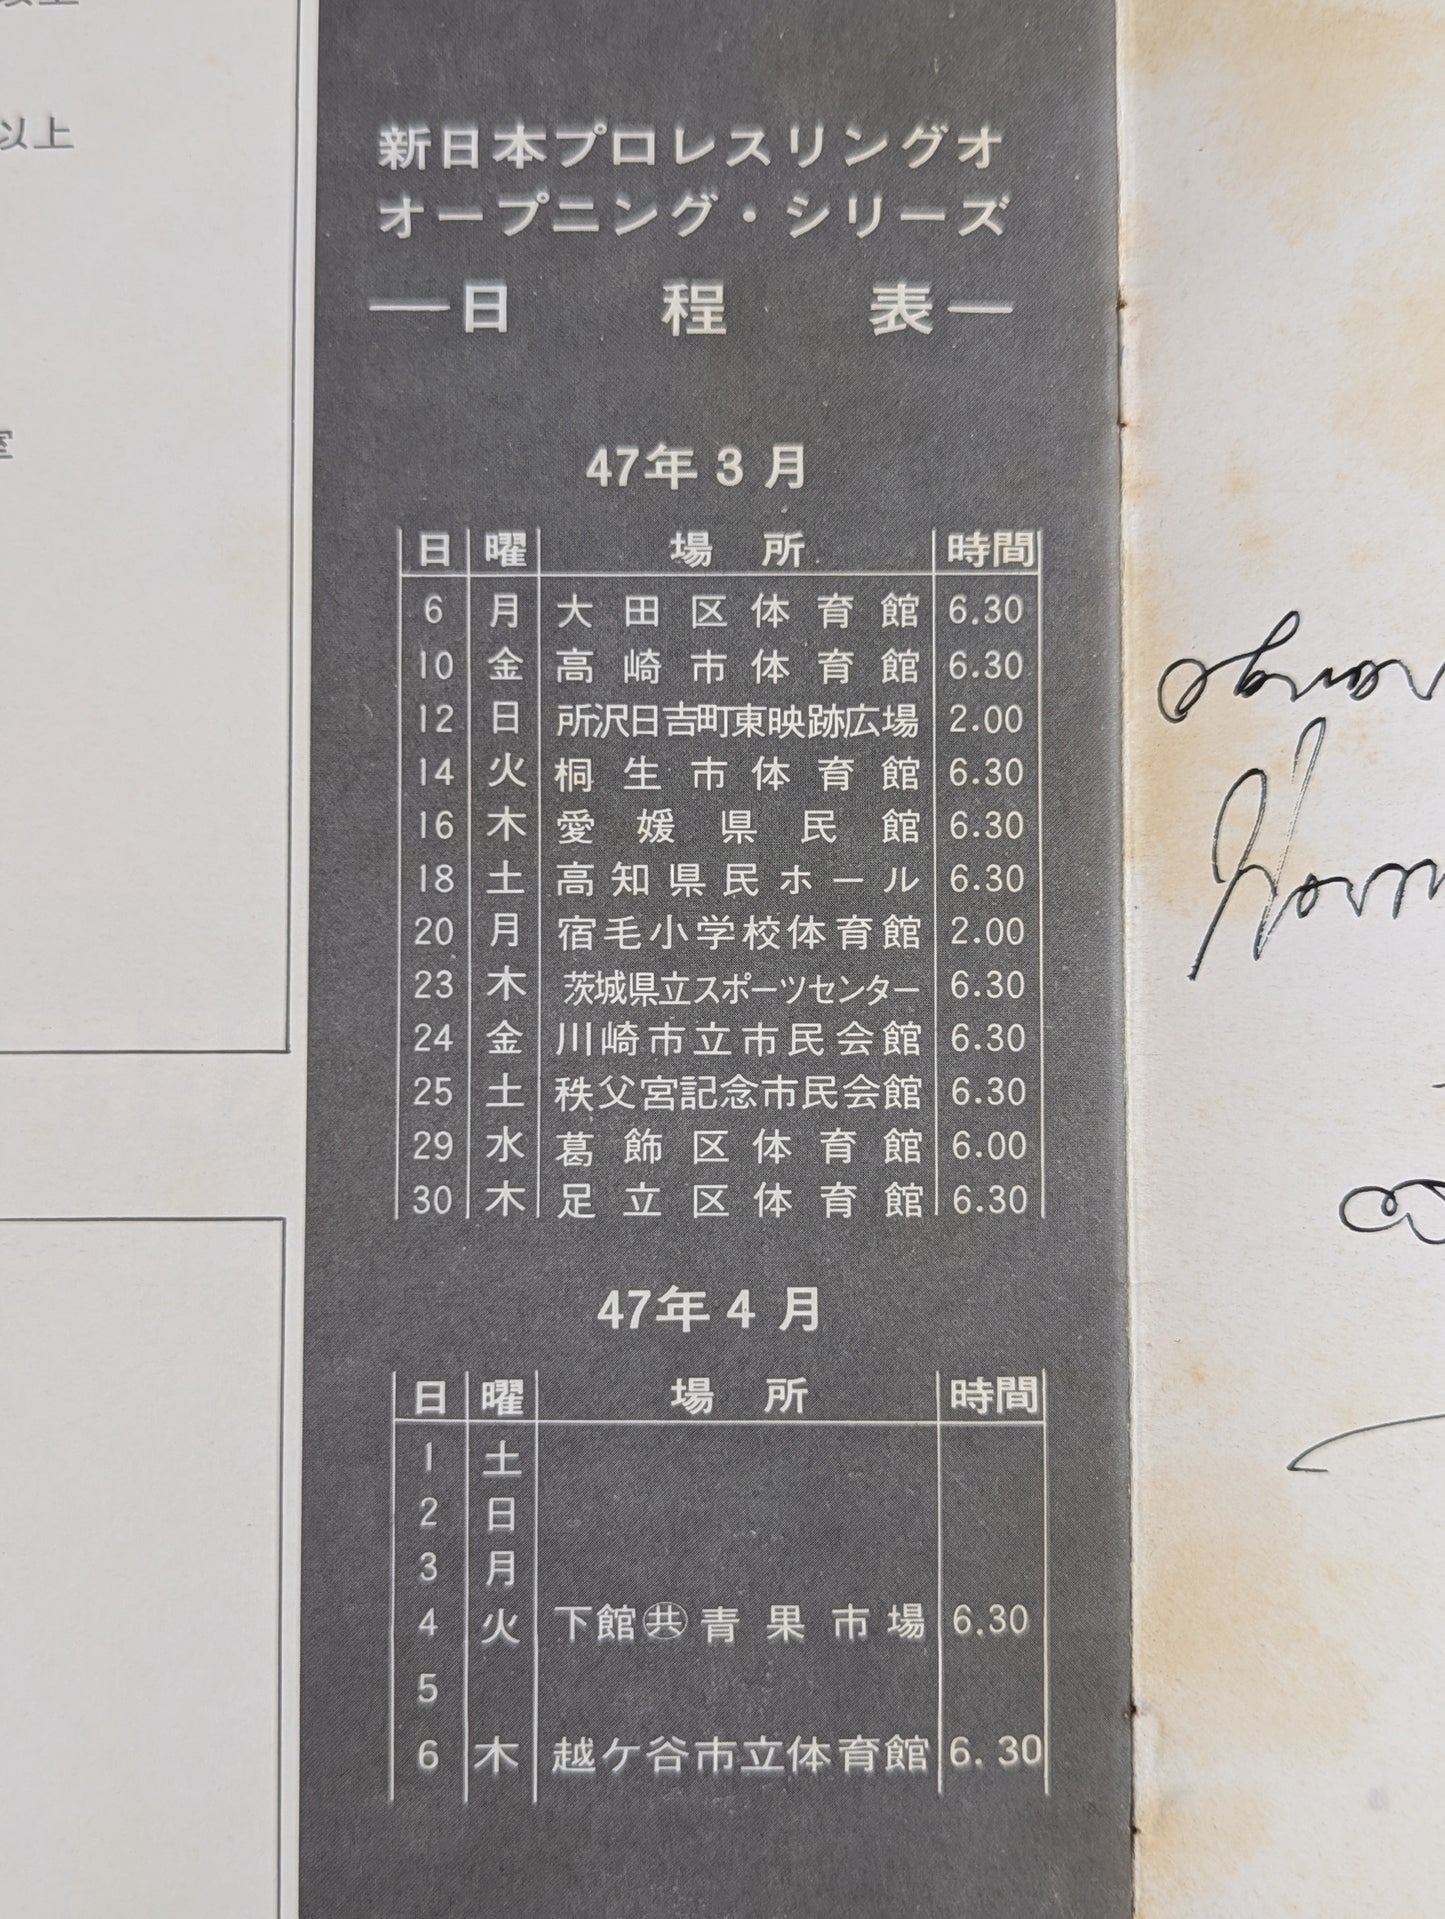 以上
室
新日本プロレスリングオ
オープニング・シリーズ
―日程表―
47年3月
日 曜 場所 時間
6 月 大田区体育館 6.30
10 金 高崎市体育館 6.30
12 日 所沢日吉町東映跡広場 2.00
14 火 桐生市体育館 6.30
16 木 愛媛県民館 6.30
18 土 高知県民ホール 6.30
20 月 宿毛小学校体育館 2.00
23 木 茨城県立スポーツセンター 6.30
24 金 川崎市立市民会館 6.30
25 土 秩父宮記念市民会館 6.30
29 水 葛飾区体育館 6.00
30 木 足立区体育館 6.30
47年4月
日 曜 場所 時間
1 土
2 日
3 月
4 火 下館㊓青果市場 6.30
5
6 木 越ケ谷市立体育館 6.30